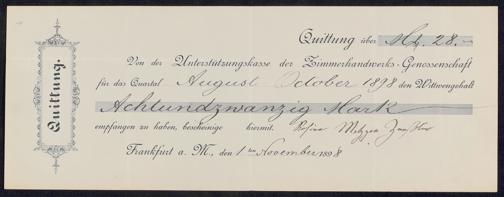 Quittung.
Quittung über Mk. 28.–
Von der Unterstützungskasse der Zimmerhandwerks-Genossenschaft
für das Quartal August October 1898 den Wittwengehalt
Achtundzwanzig Mark
empfangen zu haben, bescheinige hiermit. Rosine Metzger
Frankfurt a. M., den 1ten November 1898